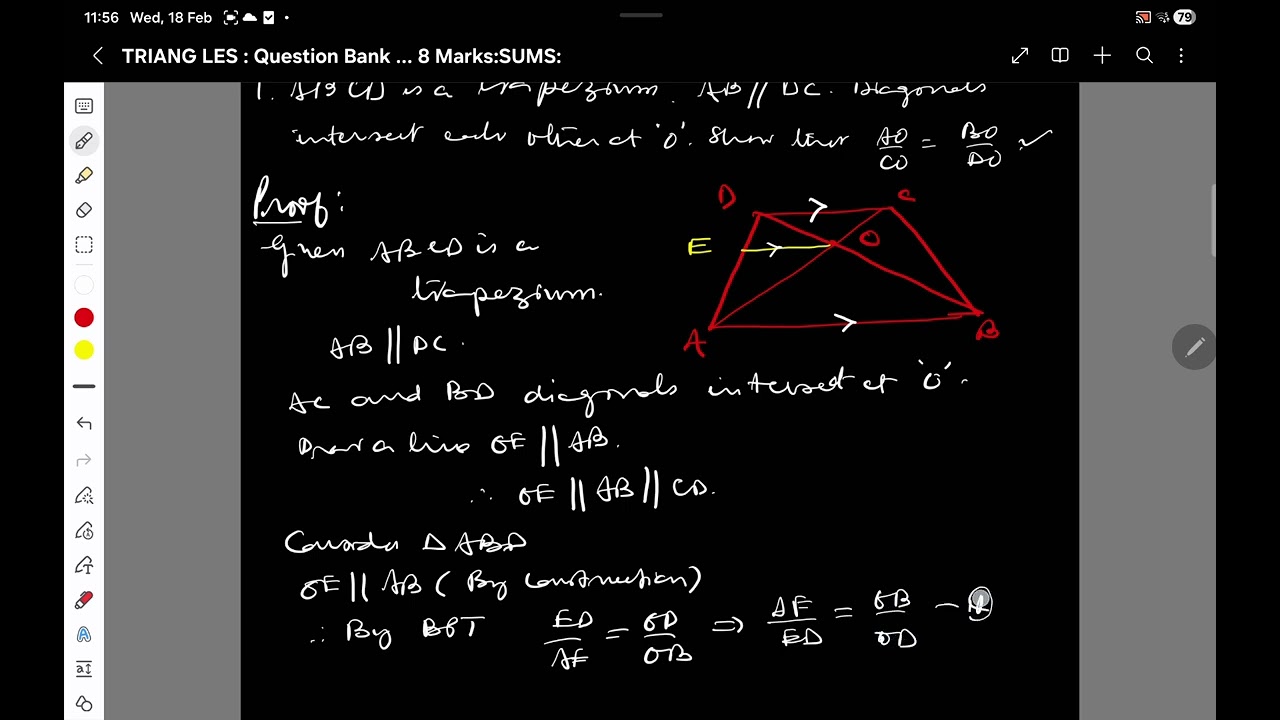 11:56 Wed, 18 Feb
79
TRIANG LES : Question Bank ... 8 Marks:SUMS:
1. ABCD is a trapezium. AB // DC. Diagonals
intersect each other at 'O'. Show that AO/CO = BO/DO
Proof:
D C
Given ABCD is a
E O
trapezium.
AB || DC.
A B
AC and BD diagonals intersect at 'O'.
Draw a line OE || AB.
∴ OE || AB || CD.
Consider Δ ABD
OE || AB (By construction)
∴ By BPT ED/AE = OD/OB ⇒ AE/ED = OB/OD –